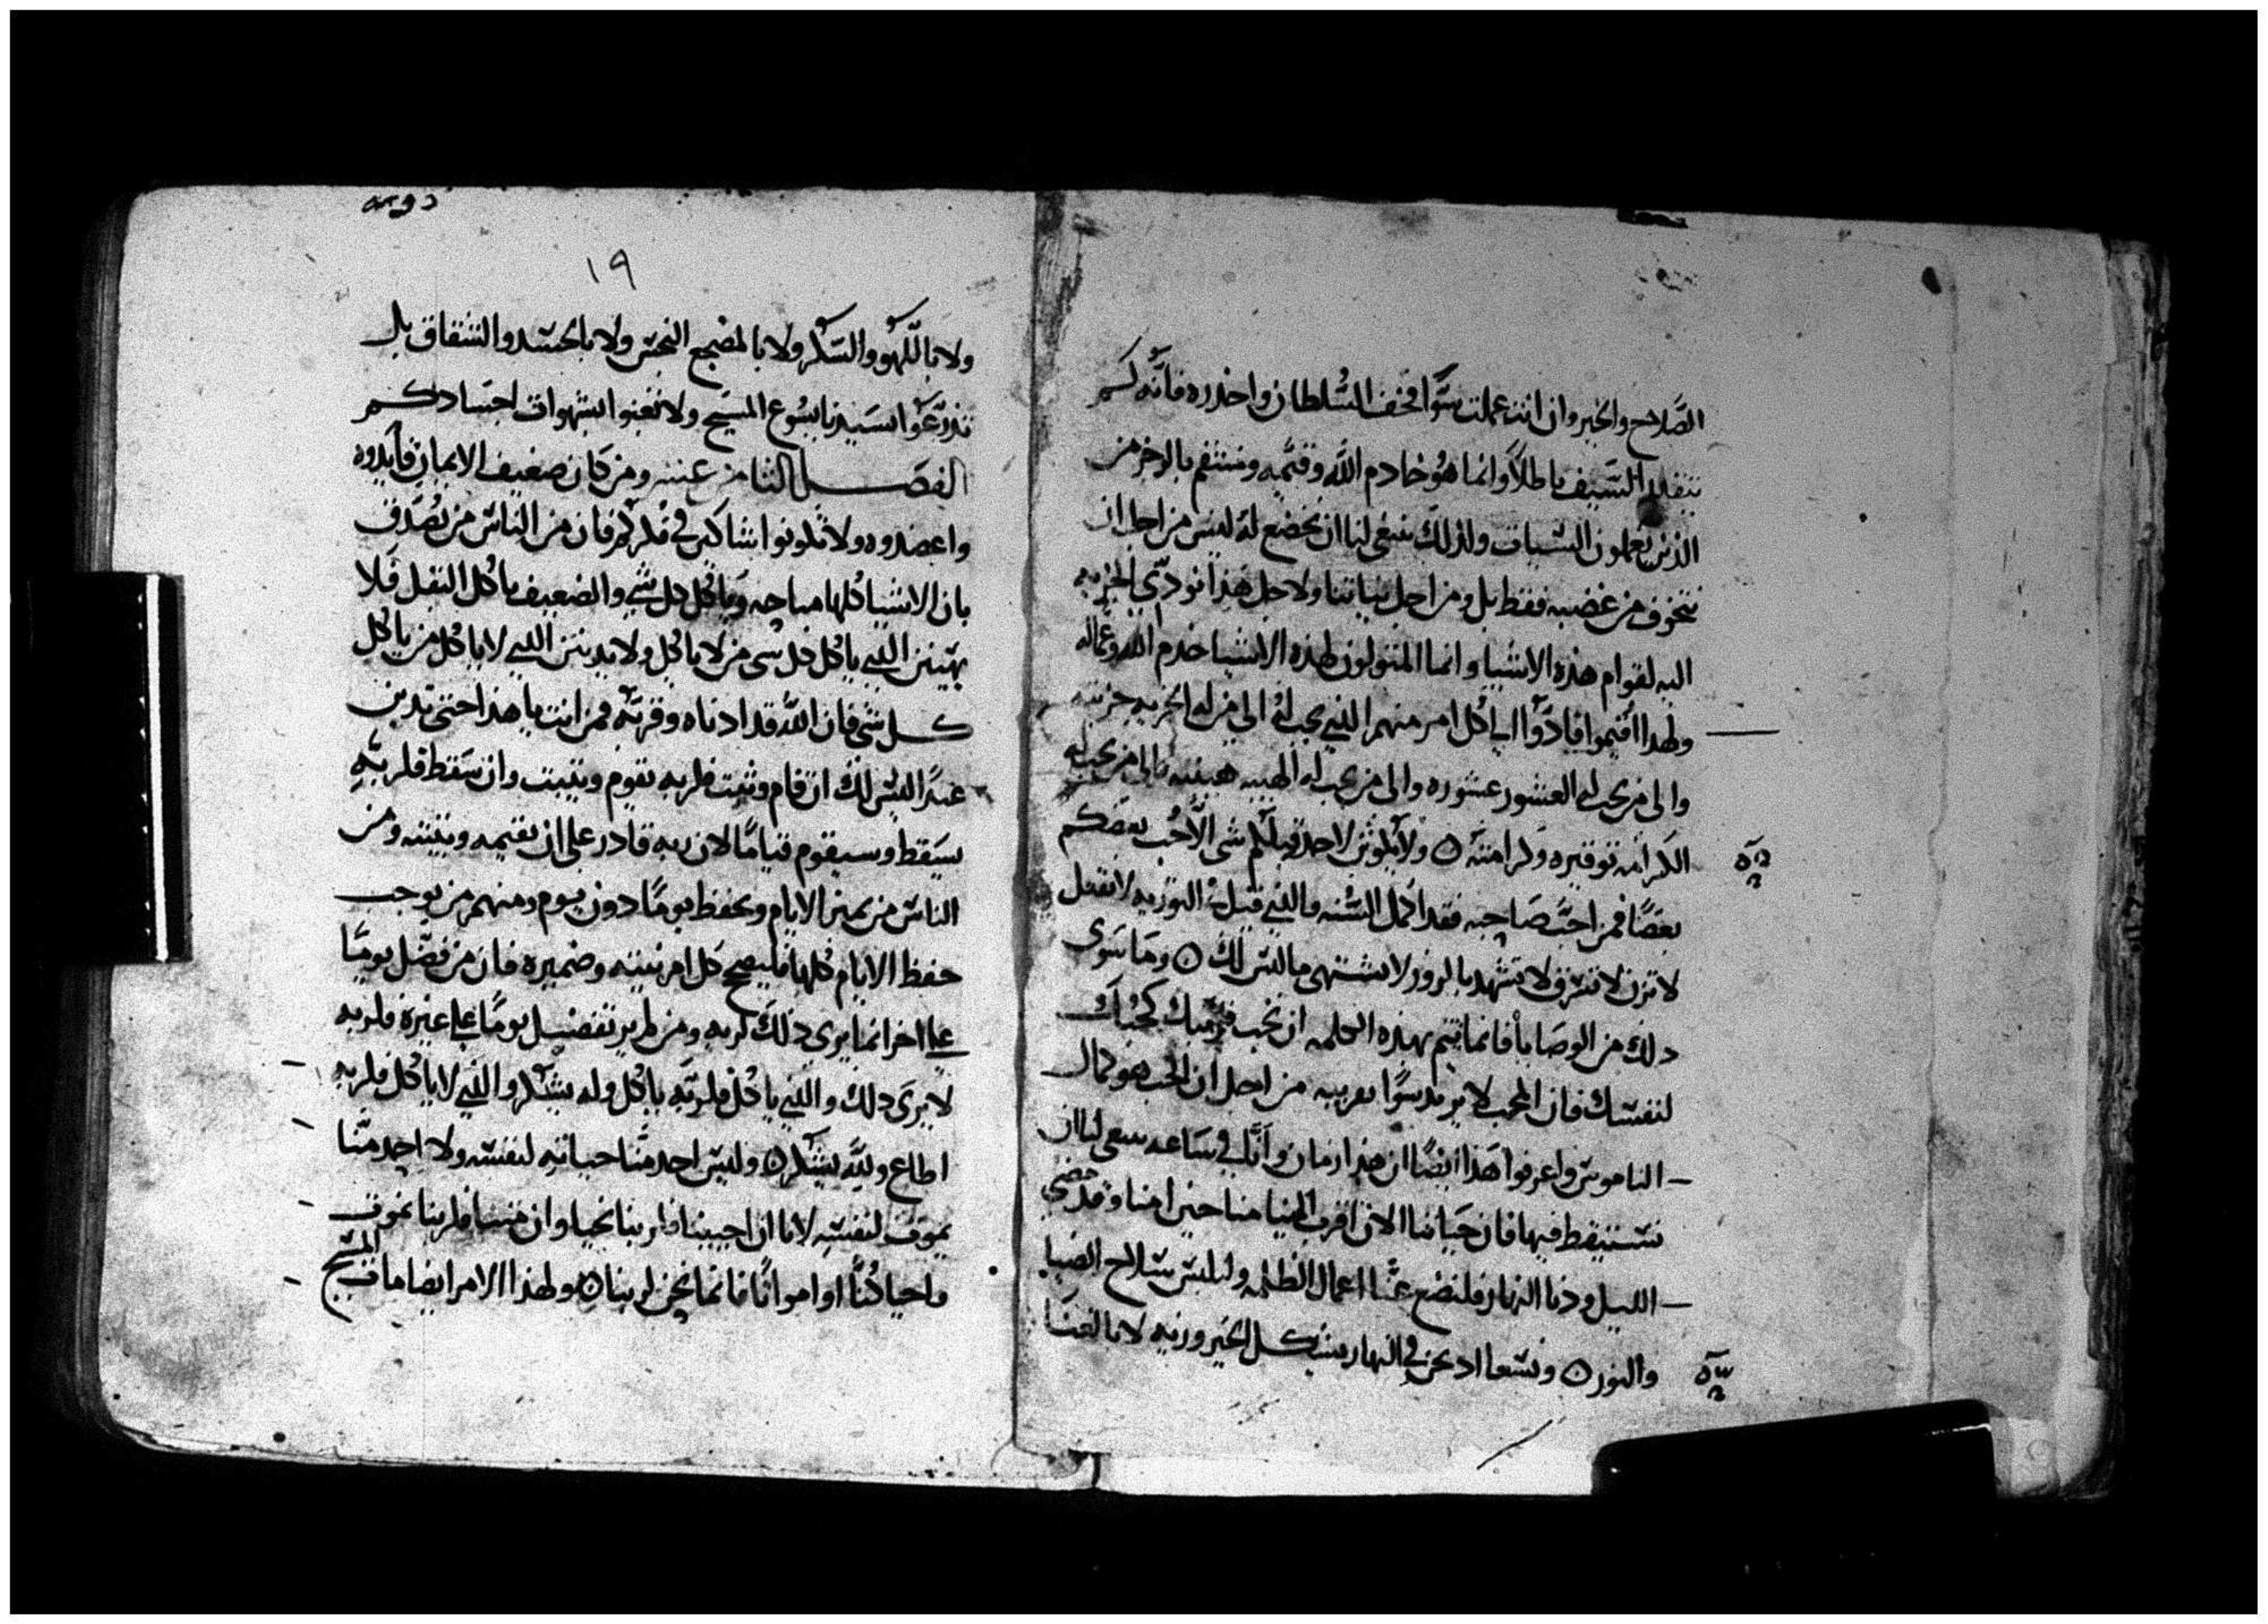 الصَّلاح والخير وان انت عملت سَّوًا فخف السُّلطان واحذره فانَّه لم
يتقلد السَّيف باطلاً وانما هُو خادم اللَّه وقيَّمه ومنتقم بالرجز من
الذين يعملون السَّيات ولذلك ينبغي لنا ان نخضع لهُ ليس من اجل ان
نتخوف من غضبه فقط بل ومن اجل نياتنا ولاجل هذا نودّي الجزيه
اليه لقوام هذه الاشيا وانما المتولون لهذه الاشيا خدم الله وعماله
ولهدا اُقيموا فادَّوُا الي كُل امر منهم الذي يجب لهُ الى من له الجزيه جزيته
والى من يجب له العشور عشوره والى من يجب له الهيبه هيبته والى من يجب له
الكرامه توقيره وكرامته ٥ ولا يكونَّن لاحد قبلكم شى الَّا حُب بعضكم
بعضًا فمن احبَّ صَاحبه فقد اكمل السُّنه والذي قيل في التوريه لا تقتل
لا تزن لا تسَرق لا تشهد بالزور لا تشتهى ما ليس لك ٥ ومَا سَوى
دلك من الوصَايا فانما تتم بهذه الكلمه ان تحب قرَيبك كحُبّك
لنفسَك فان المحب لا يريد سَوًا بقريبه من اجل ان الحب هو كمال
الناموسَ واعرفوا هَذا ايضًا ان هذا زمان وانَّه في سَاعه ينبغى لنا ان
نسَتيقظ فيها فان حَياتنا الان اقرب الينا منا حين امنا وقد مضى
الليل ودنا النهار فلنضع عنَّا اعمال الظلمه ولنلبسَ سَلاح الضيا
والنور ٥ ونسَعا اد نحن في النهار بشكل الخير وزيه لا بالغنا
١٩
ولا باللَّهو والسَّكر ولا بالمضجع النجسَ ولا بالحسَد والشقاق بل
تدرَّعوا بسَيدنا يسُوع المسَيح ولا تعنوا بشهوات اجسَادكم
الفصَل الثامن عشر ومن كَان ضعيف الايمان فايدوه
واعضدوه ولا تكونوا شاكين في فكركم فان من الناسَ من يُصَدّق
بان الاشيا كُلها مباحه وياكُل كل شي والضعيف ياكُل البقل فَلا
يهينن الذي ياكُل كل شي من لا ياكُل ولا يدينن الذي لا ياكُل من ياكُل
كل شى فان اللَّه قد ادناه وقربَّه فمن انت يا هذا حتى تدين
عبدًا ليسَ لك ان قام وثبت فلربه يقوم ويثبت وان سَقط فلربَّه
يسَقط وسيقوم قيامًا لان ربه قادر على ان يقيمه ويثبته ومن
الناسَ من يميز الايام ويحفظ يومًا دون يوم ومنهم من يوجب
حفظ الايام كُلها فليصح كل امر نيته وضميره فان من فضَّل يومًا
على اخر انما يرى ذلك لربه ومن لم ير تفضيل يومًا على غيره فلربه
لا يرَى دلك والذي ياكُل فلربَّه ياكُل وله يشكر والذي لا ياكُل فلربه
اطاع وللَّه يشكر ٥ وليسَ احد منَّا حياته لنفسَه ولا احد منَّا
يموت لنفسَه لانا ان احيينا فلربنا نحيا وان متنا فلربنا نموت
واحيا كُنَّا او امواتًا فانما نحن لربنا ٥ ولهذا الامر ايضا مات المسَيح